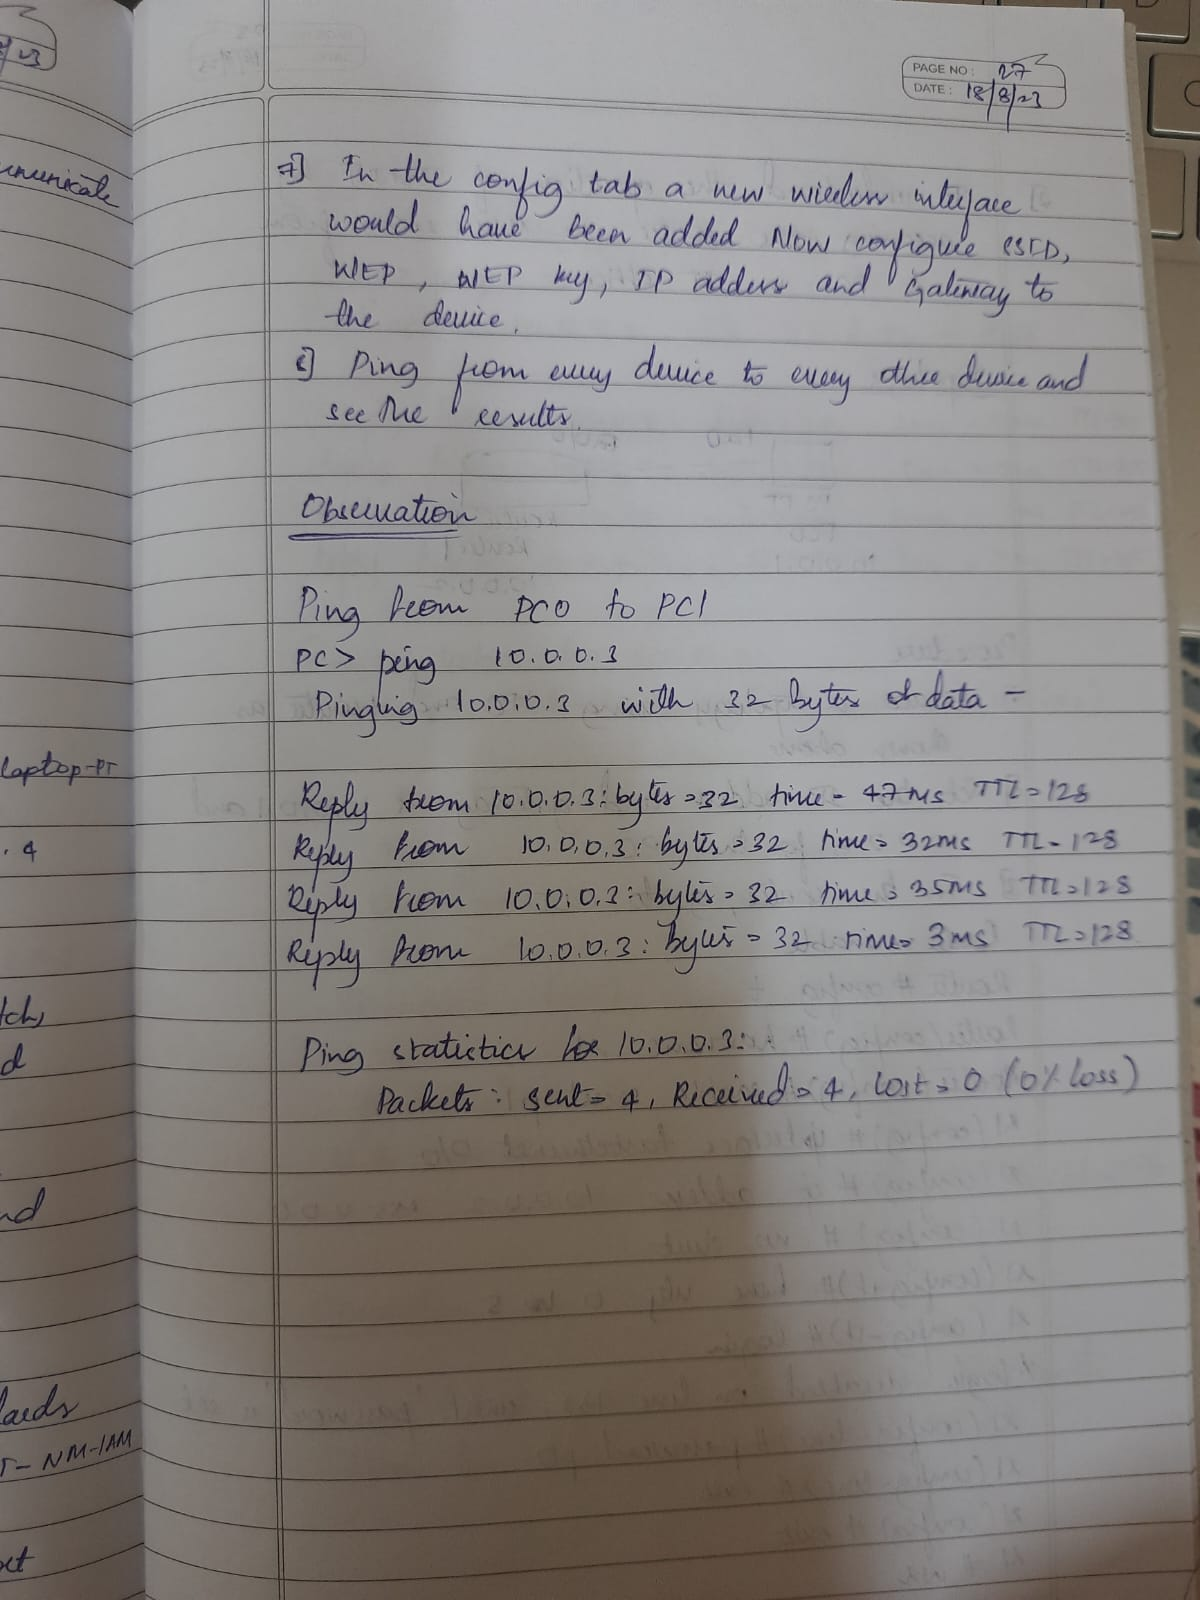 23
PAGE NO: 27
DATE: 18/8/23
mmunicate
7] In the config tab a new wireless interface
would have been added Now configure SSID,
WEP, WEP key, IP address and Gateway to
the device.
8] Ping from every device to every other device and
see the results.
Observation
Ping from PC0 to PC1
PC> ping 10.0.0.3
Pinging 10.0.0.3 with 32 bytes of data -
laptop-PT
Reply from 10.0.0.3: bytes=32 time=47ms TTL=128
.4
Reply from 10.0.0.3: bytes=32 time=32ms TTL=128
Reply from 10.0.0.3: bytes=32 time=35ms TTL=128
Reply from 10.0.0.3: bytes=32 time=3ms TTL=128
tch,
d
Ping statistics for 10.0.0.3:
Packets: sent=4, Received=4, Lost=0 (0% loss)
nd
T-NM-1AM